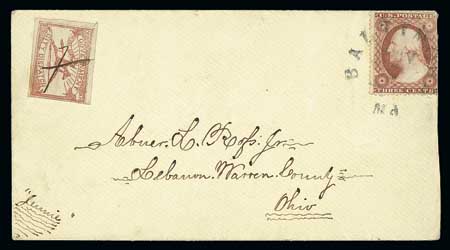 U.S. POSTAGE
THREE CENTS
BALT
Md
Abner L. Ross Jr.
Lebanon. Warren. County
Ohio
"Jennie"